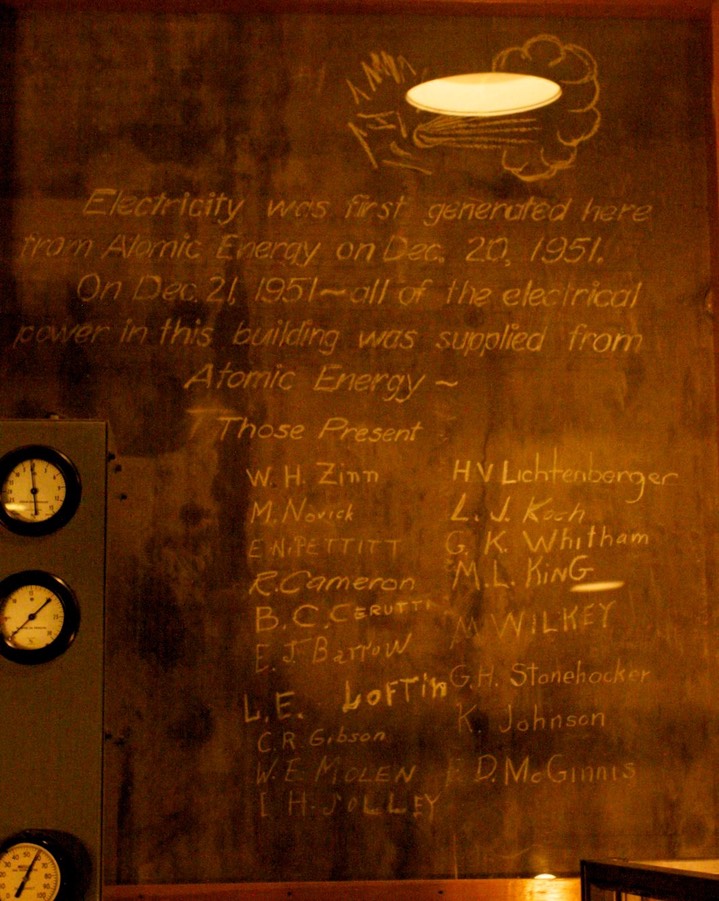 Electricity was first generated here
from Atomic Energy on Dec. 20, 1951.
On Dec. 21, 1951~all of the electrical
power in this building was supplied from
Atomic Energy~
Those Present
W. H. Zinn
M. Novick
E. N. PETTITT
R. Cameron
B. C. CERUTTI
E. J. Barrow
L. E. LOFTin
C. R Gibson
W. E. MOLEN
H. JOLLEY
H V Lichtenberger
L. J. Koch
G. K. Whitham
M. L. KiNG
M WiLKEY
G. H. Stonehocker
K. Johnson
D. McGinnis